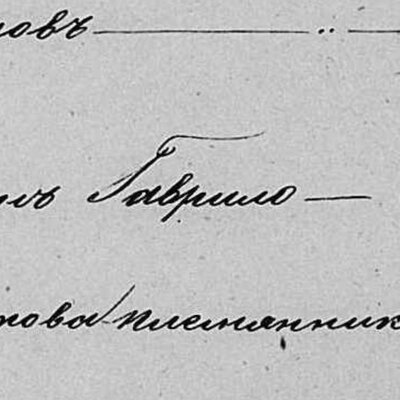 новъ — " —
нъ Гаврило —
това племянник